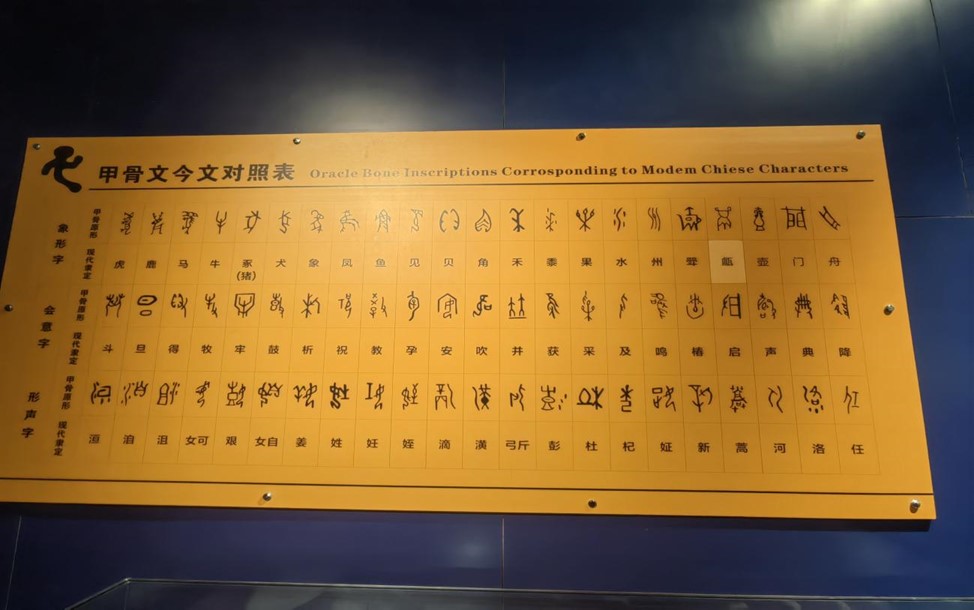 甲骨文今文对照表 Oracle Bone Inscriptions Corrosponding to Modem Chiese Characters
象形字
甲骨原形
现代隶定
虎 鹿 马 牛 豕(猪) 犬 象 凤 鱼 见 贝 角 禾 黍 果 水 州 甗 壶 门 舟
会意字
甲骨原形
现代隶定
斗 旦 得 牧 牢 鼓 析 祝 教 孕 安 吹 并 获 采 及 鸣 启 声 典 降
形声字
甲骨原形
现代隶定
洹 洎 沮 女可 艰 女自 姜 姓 妊 姪 滴 潢 弓斤 彭 杜 杞 新 蒿 河 洛 任